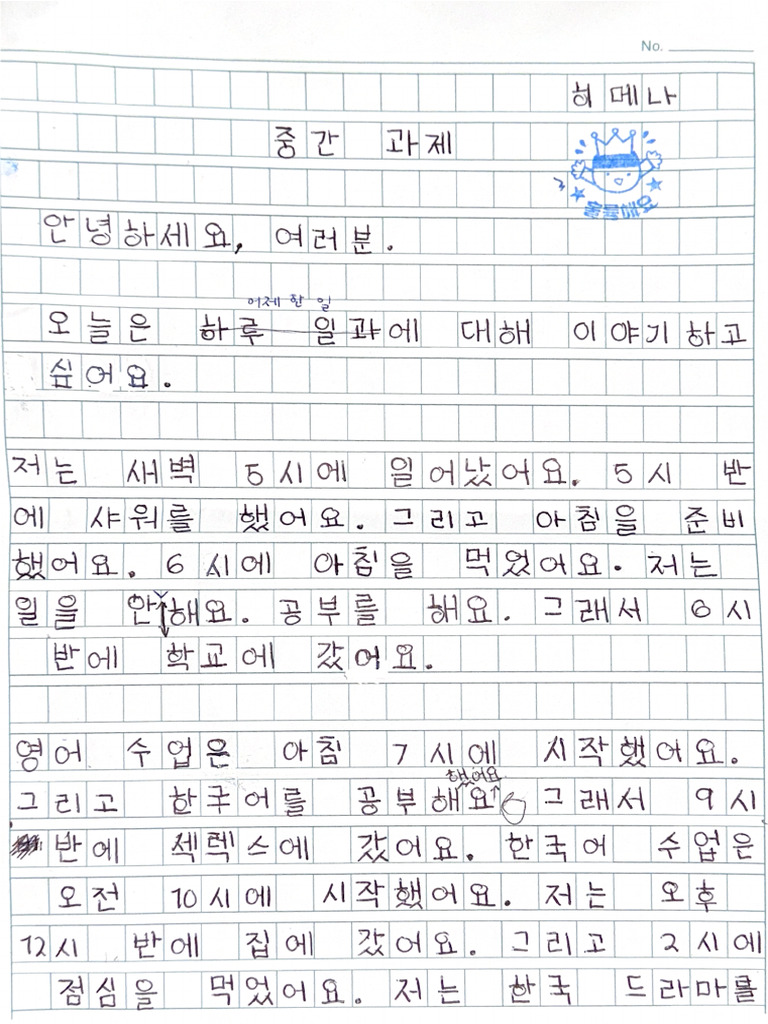 No.
히메나
중간 과제
훌륭해요
안녕하세요, 여러분.
어제 한 일
오늘은 하루 일과에 대해 이야기하고
싶어요.
저는 새벽 5시에 일어났어요. 5시 반
에 샤워를 했어요. 그리고 아침을 준비
했어요. 6시에 아침을 먹었어요. 저는
일을 안 해요. 공부를 해요. 그래서 6시
반에 학교에 갔어요.
영어 수업은 아침 7시에 시작했어요.
했어요
그리고 한국어를 공부해요. 그래서 9시
반에 젝렉스에 갔어요. 한국어 수업은
오전 10시에 시작했어요. 저는 오후
12시 반에 집에 갔어요. 그리고 2시에
점심을 먹었어요. 저는 한국 드라마를